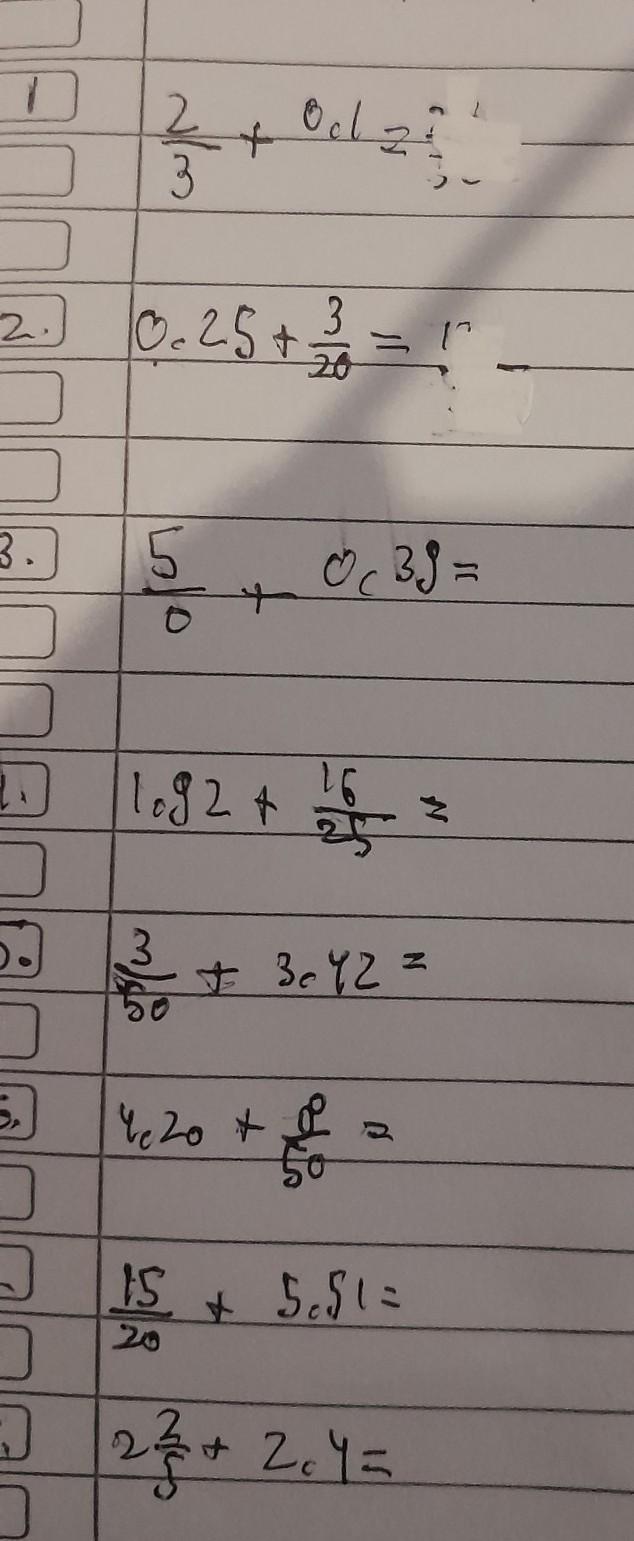 1 2/3 + 0.1 =
2. 0.25 + 3/20 =
3. 5/0 + 0.39 =
1.92 + 16/25 =
3/50 + 3.42 =
4.20 + 8/50 =
15/20 + 5.51 =
2 2/5 + 2.4 =